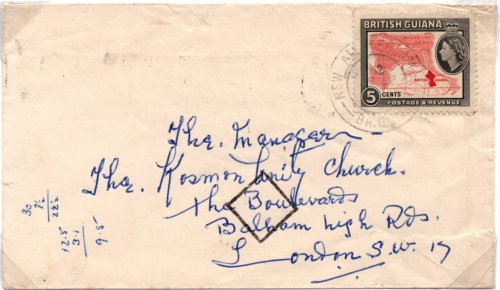 BRITISH GUIANA
BRITISH GUIANA
5 CENTS
POSTAGE & REVENUE
NEW
The. Manager
The. Kosmon Unity Church.
The Boulevards
Balham high Rds.
London S.W. 17
30
22½
12.5
3.1
9.5